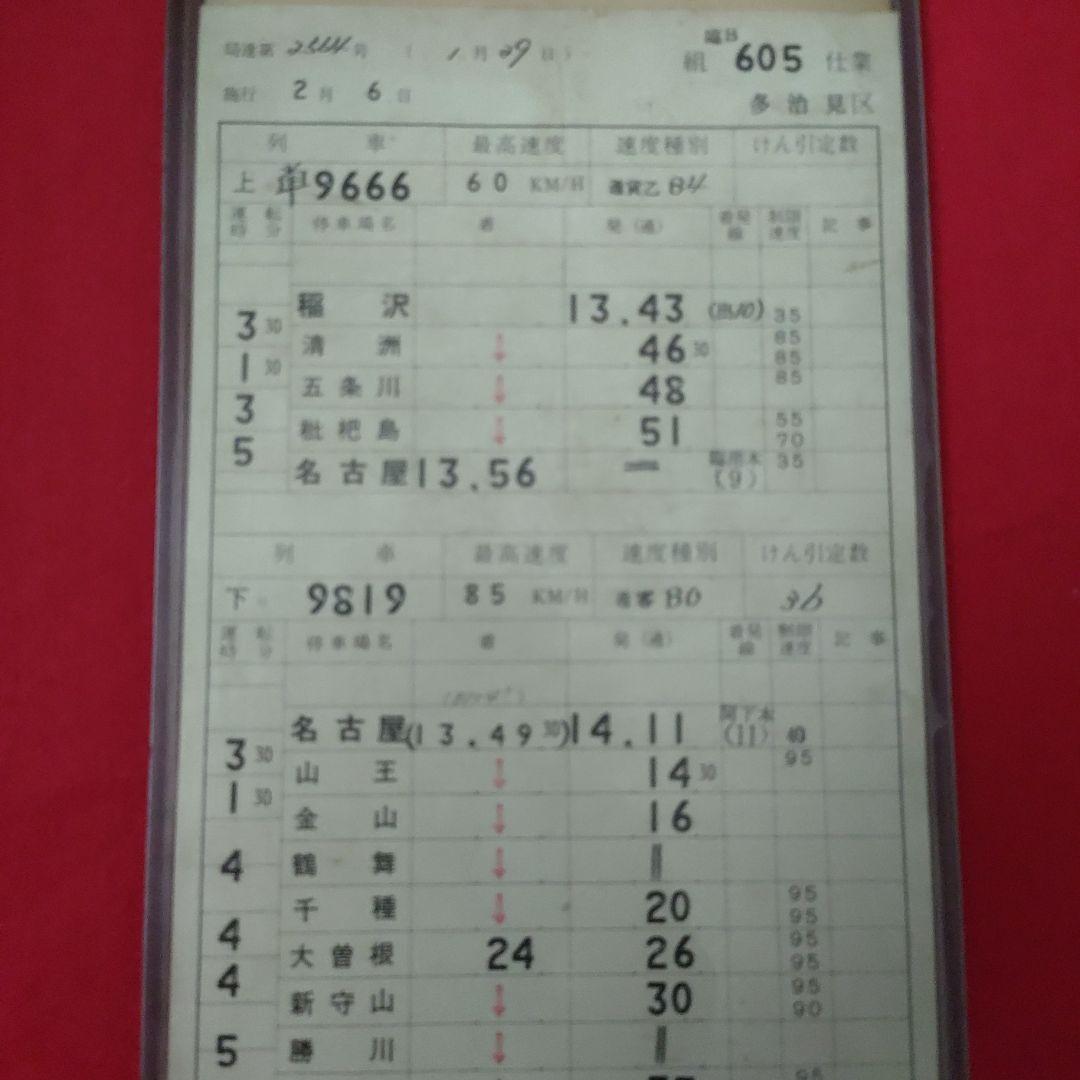 局達第 2564号 ( 1月29日)
臨B
組 605 仕業
施行 2月 6日
多治見区
列車 最高速度 速度種別 けん引定数
上 単9666 60 KM/H 通貨乙 B4
運転時分 停車場名 着 発(通) 着発線 制限速度 記事
稲沢 13.43 35
3 30
清洲 ↓ 46 30 85 85
1 30
五条川 ↓ 48 85
3
枇杷島 ↓ 51 55 70
5
名古屋 13.56 ━ (9) 35
列車 最高速度 速度種別 けん引定数
下 9819 85 KM/H 通客 B0 36
運転時分 停車場名 着 発(通) 着発線 制限速度 記事
名古屋 (13.49 30) 14.11 (11) 40
3 30 95
山王 ↓ 14 30
1 30
金山 ↓ 16
4
鶴舞 ↓ ‖
千種 ↓ 20 95 95
4
大曽根 24 26 95 95
4
新守山 ↓ 30 95 90
5
勝川 ↓ ‖
95